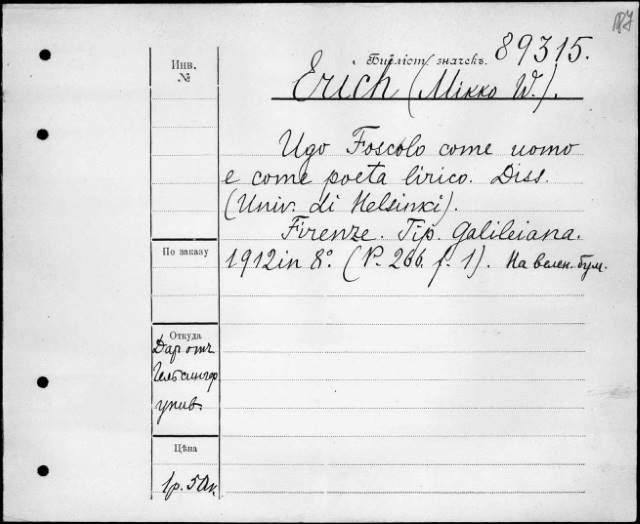 Библіот. значекъ. 89315.
Инв.
№
Erich (Mikko W.).
Ugo Foscolo come uomo
e come poeta lirico. Diss.
(Univ. di Helsinki).
Firenze. Tip. Galileiana.
По заказу
1912 in 8°. (P. 266. f. 1). На велен. бум.
Откуда
Дар отъ
Гельсингф
унив.
Цѣна
1р. 50к